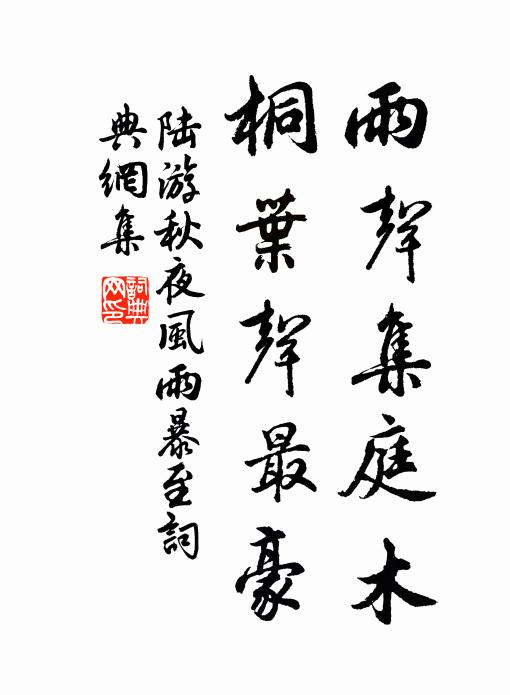 雨聲集庭木
桐葉聲最豪
陸游秋夜風雨暴至詞
典網集
詞典
网印